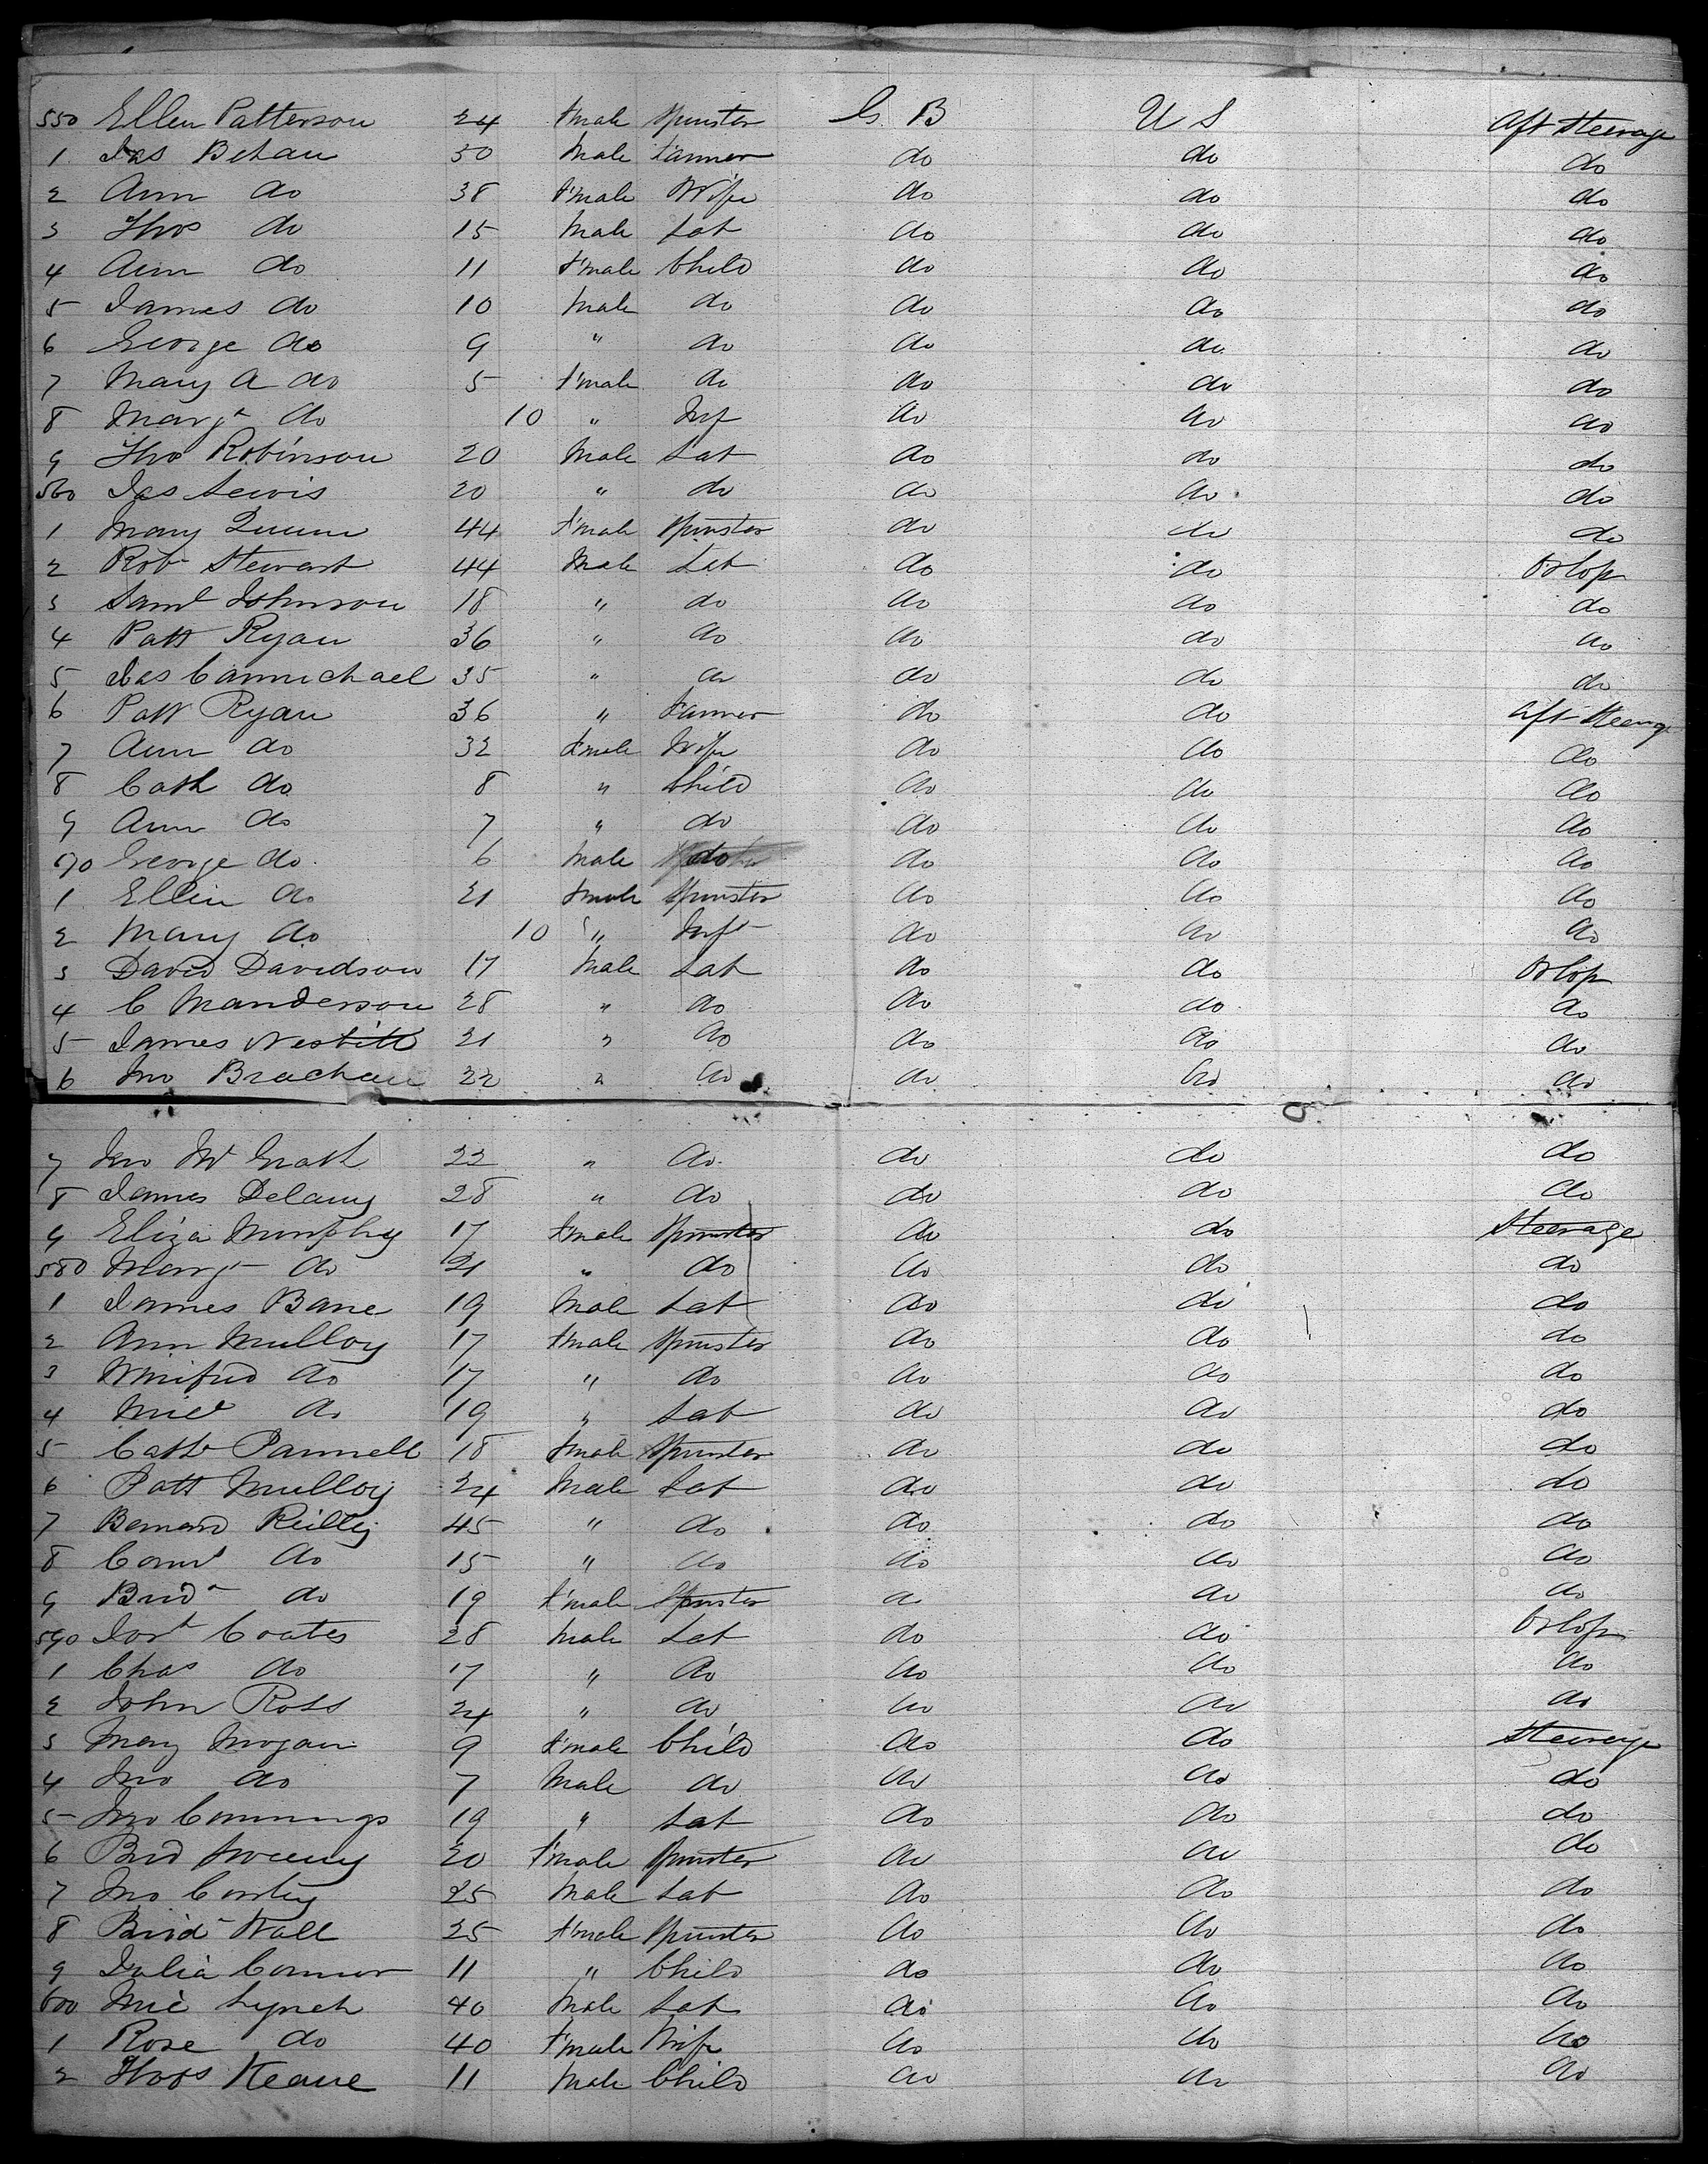 550 Ellen Patterson 24 F'male Spinster G. B U S Aft Steerage
1 Jas Behan 30 Male Farmer do do do
2 Ann do 38 F'male Wife do do do
3 Thos do 15 Male Lab do do do
4 Ann do 11 F'male Child do do do
5 James do 10 Male do do do do
6 George do 9 " do do do do
7 Mary A do 5 F'male do do do do
8 Margt do 10 " Inf do do do
9 Tho Robinson 20 Male Lab do do do
560 Jas Lewis 20 " do do do do
1 Mary Quinn 44 F'male Spinster do do do
2 Robt Stewart 44 Male Lab do do Orlop
3 Saml Johnson 18 " do do do do
4 Patt Ryan 36 " do do do do
5 Jas Carmichael 35 " do do do do
6 Patt Ryan 36 " Farmer do do Aft Steerage
7 Ann do 32 F'male Wife do do do
8 Cath do 8 " Child do do do
9 Ann do 7 " do do do do
570 George do 6 Male do do do do
1 Ellen do 21 F'male Spinster do do do
2 Mary do 10 " Inft do do do
3 David Davidson 17 Male Lab do do Orlop
4 C Manderson 28 " do do do do
5 James Nesbitt 21 " do do do do
6 Jno Brachan 22 " do do do do
7 Jno Mc Grath 22 " do do do do
8 James Delany 28 " do do do do
9 Eliza Murphy 17 F'male Spinster do do Steerage
580 Margt do 21 " do do do do
1 James Bane 19 Male Lab do do do
2 Ann Mulloy 17 F'male Spinster do do do
3 Winifred do 17 " do do do do
4 Micl do 19 " Lab do do do
5 Cath Pannell 18 F'male Spinster do do do
6 Patt Mulloy 24 Male Lab do do do
7 Bernard Reilly 45 " do do do do
8 do 15 " do do do do
9 Bridt do 19 F'male Spinster do do do
590 Josh Coates 28 Male Lab do do Orlop
1 Chas do 17 " do do do do
2 John Ross 24 " do do do do
3 Mary Mogan 9 F'male Child do do Steerage
4 Jno do 7 Male do do do do
5 Jno Commings 19 " Lab do do do
6 Brid Sweeny 20 F'male Spinster do do do
7 Jno 25 Male Lab do do do
8 Brid Wall 25 F'male Spinster do do do
9 Julia Connor 11 " Child do do do
600 Mic Lynch 40 Male Lab do do do
1 Rose do 40 F'male Wife do do do
2 Thos Keane 11 Male Child do do do